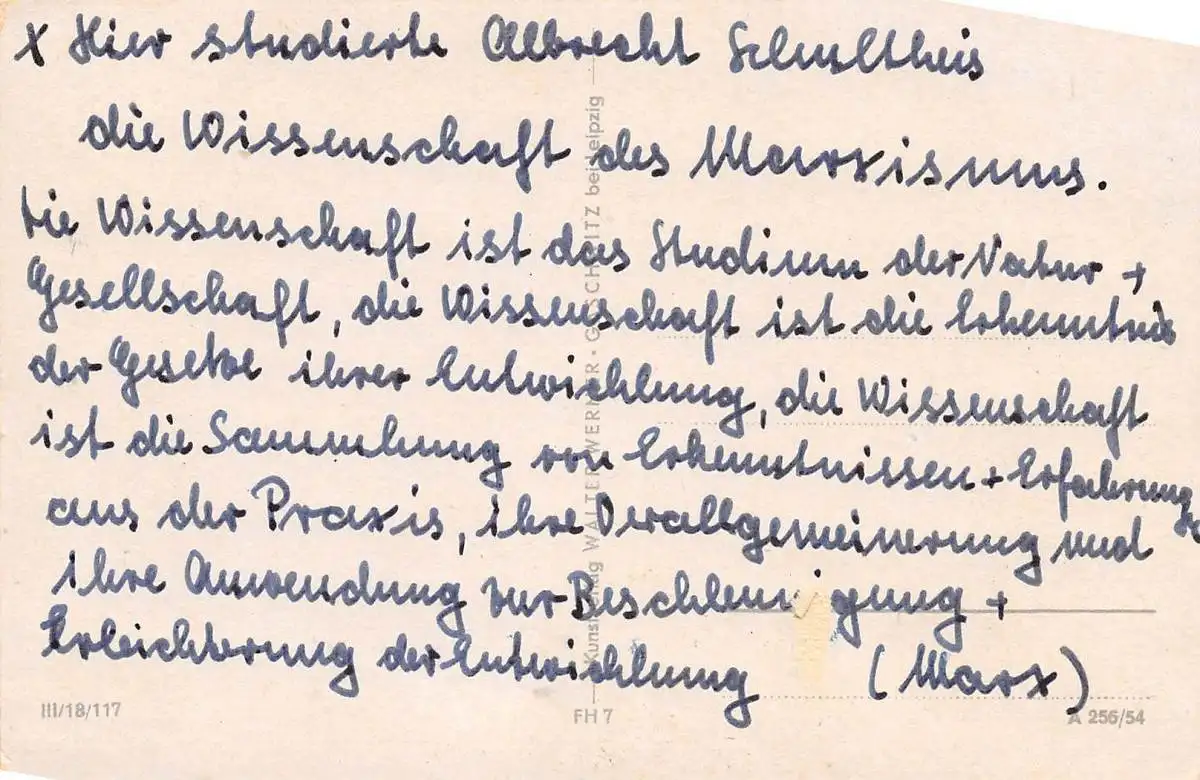 x Hier studierte Albrecht Schultheis
die Wissenschaft des Marxismus.
Die Wissenschaft ist das Studium der Natur +
Gesellschaft, die Wissenschaft ist die Erkenntnis
der Gesetze ihrer Entwicklung, die Wissenschaft
ist die Sammlung von Erkenntnissen + Erfahrungen
aus der Praxis, ihre Verallgemeinerung und
ihre Anwendung zur Beschleunigung +
Erleichterung der Entwicklung (Marx)
III/18/117 FH 7 A 256/54
Kunstverlag WALTER WERNER · GASCHWITZ bei Leipzig